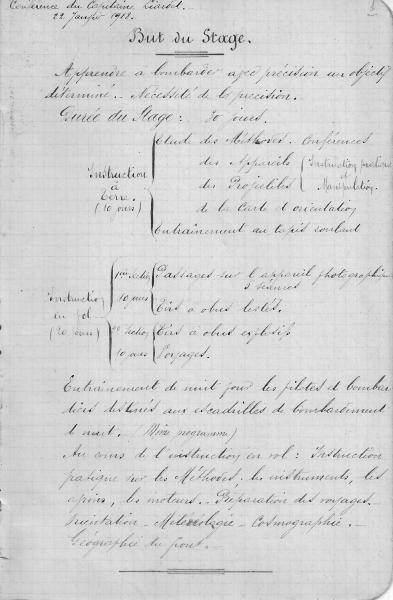 Conférence du Capitaine
22 Janvier 1918.
1
But du Stage.
Apprendre à bombarder avec précision un objectif
déterminé. - Nécessité de la precision.
Durée du Stage : 30 jours.
Instruction
à
Terre.
(10 jours)
Etude des Méthodes. Conférences
des Appareils
des Projectiles
Instruction pratique
et
Manipulation.
de la Carte et orientation
Entraînement au tapis roulant
Instruction
en vol
(20 jours)
1ère Section
10 jours
Passages sur l'appareil photographique
3 séances
Tirs à obus lestés.
2e Section
10 jours
Tirs à obus explosifs
Voyages.
Entraînement de nuit pour les pilotes et bombar
diers destinés aux escadrilles de bombardement
de nuit. (Même programme)
Au cours de l'instruction en vol : Instruction
pratique sur les Méthodes, les instruments, les
avions, les moteurs. - Préparation des voyages.
Orientation - Météorologie - Cosmographie. -
Géographie du front. -